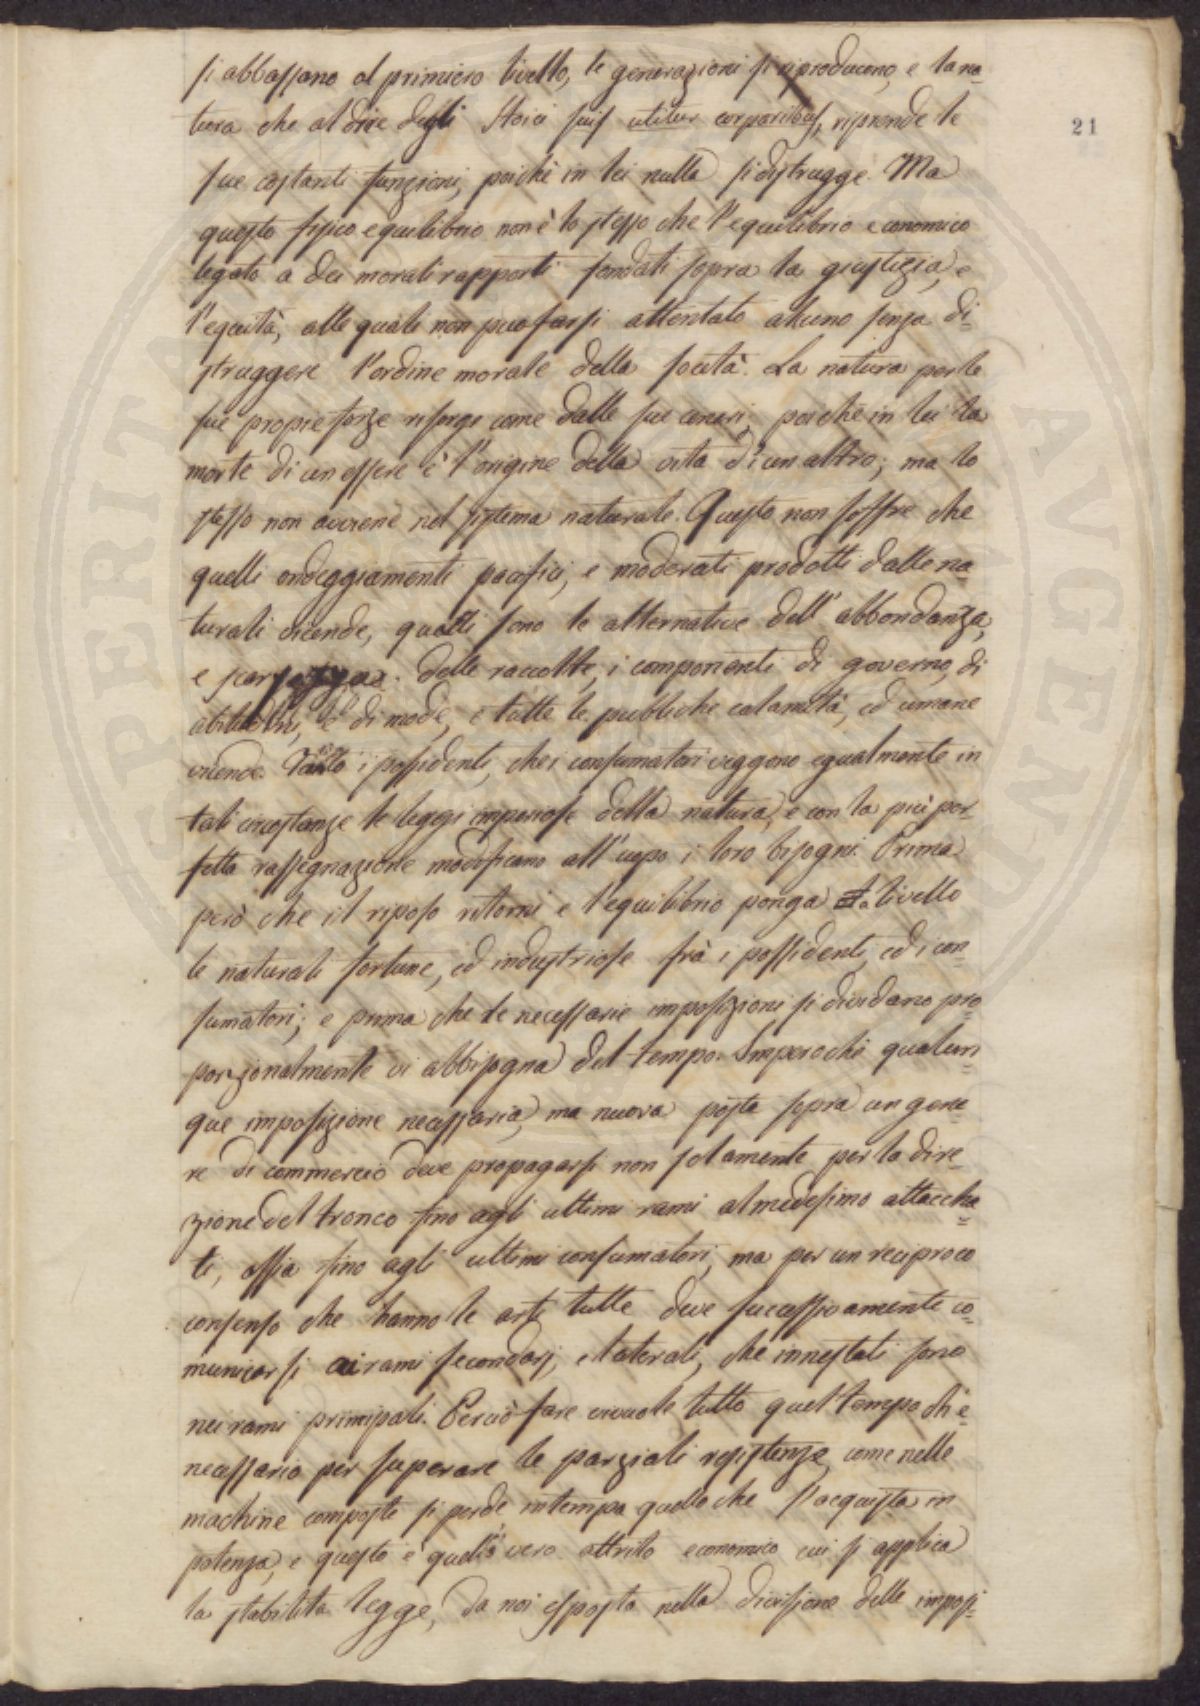 21
si abbassano al primiero livello, le generazioni si riproducono, e la na=
tura che al dire degli Stoici suis utitur corporibus, riprende le
sue costanti funzioni, poichè in lei nulla si distrugge. Ma
questo fisico equilibrio non è lo stesso che l'equilibrio economico
legato a dei morali rapporti fondati sopra la giustizia, e
l'equità, alle quali non può farsi attentato alcuno senza di=
struggere l'ordine morale della società. La natura per le
sue proprie forze risorge come dalle sue ceneri, poichè in lei la
morte di un essere è l'origine della vita di un altro; ma lo
stesso non avviene nel sistema naturale. Questo non soffre che
quelli ondeggiamenti pacifici, e moderati prodotti dalle na=
turali vicende, quali sono le alternative dell'abbondanza,
e scarsezza delle raccolte, i componenti di governo, di
abitudini, e di mode, e tutte le pubbliche calamità, ed umane
vicende. Tanto i possidenti, che i consumatori veggono egualmente in
tali circostanze le leggi imperiose della natura, e con la più per=
fetta rassegnazione modificano all'uopo i loro bisogni. Prima
però che il riposo ritorni e l'equilibrio ponga a livello
le naturali fortune, ed industriose frà i possidenti, ed i con=
sumatori; e prima che le necessarie imposizioni si dividano pro
porzionalmente vi abbisogna del tempo. Imperochè qualun=
que imposizione necessaria, ma nuova posta sopra un gene=
re di commercio deve propagarsi non solamente per la dire=
zione del tronco fino agli ultimi rami al medesimo attacha=
ti, ossia fino agli ultimi consumatori, ma per un reciproco
consenso che hanno le arti tutte deve successivamente co=
municarsi ai rami secondarj, e laterali, che innestati sono
nei rami principali. Perciò fare vi vuole tutto quel tempo ch'è
necessario per superare le parziali resistenze, come nelle
machine composte si perde in tempo quello che s'acquista in
potenza, e questo è quello vero attrito economico cui si applica
la stabilita legge, da noi esposta nella divisione delle imposi=